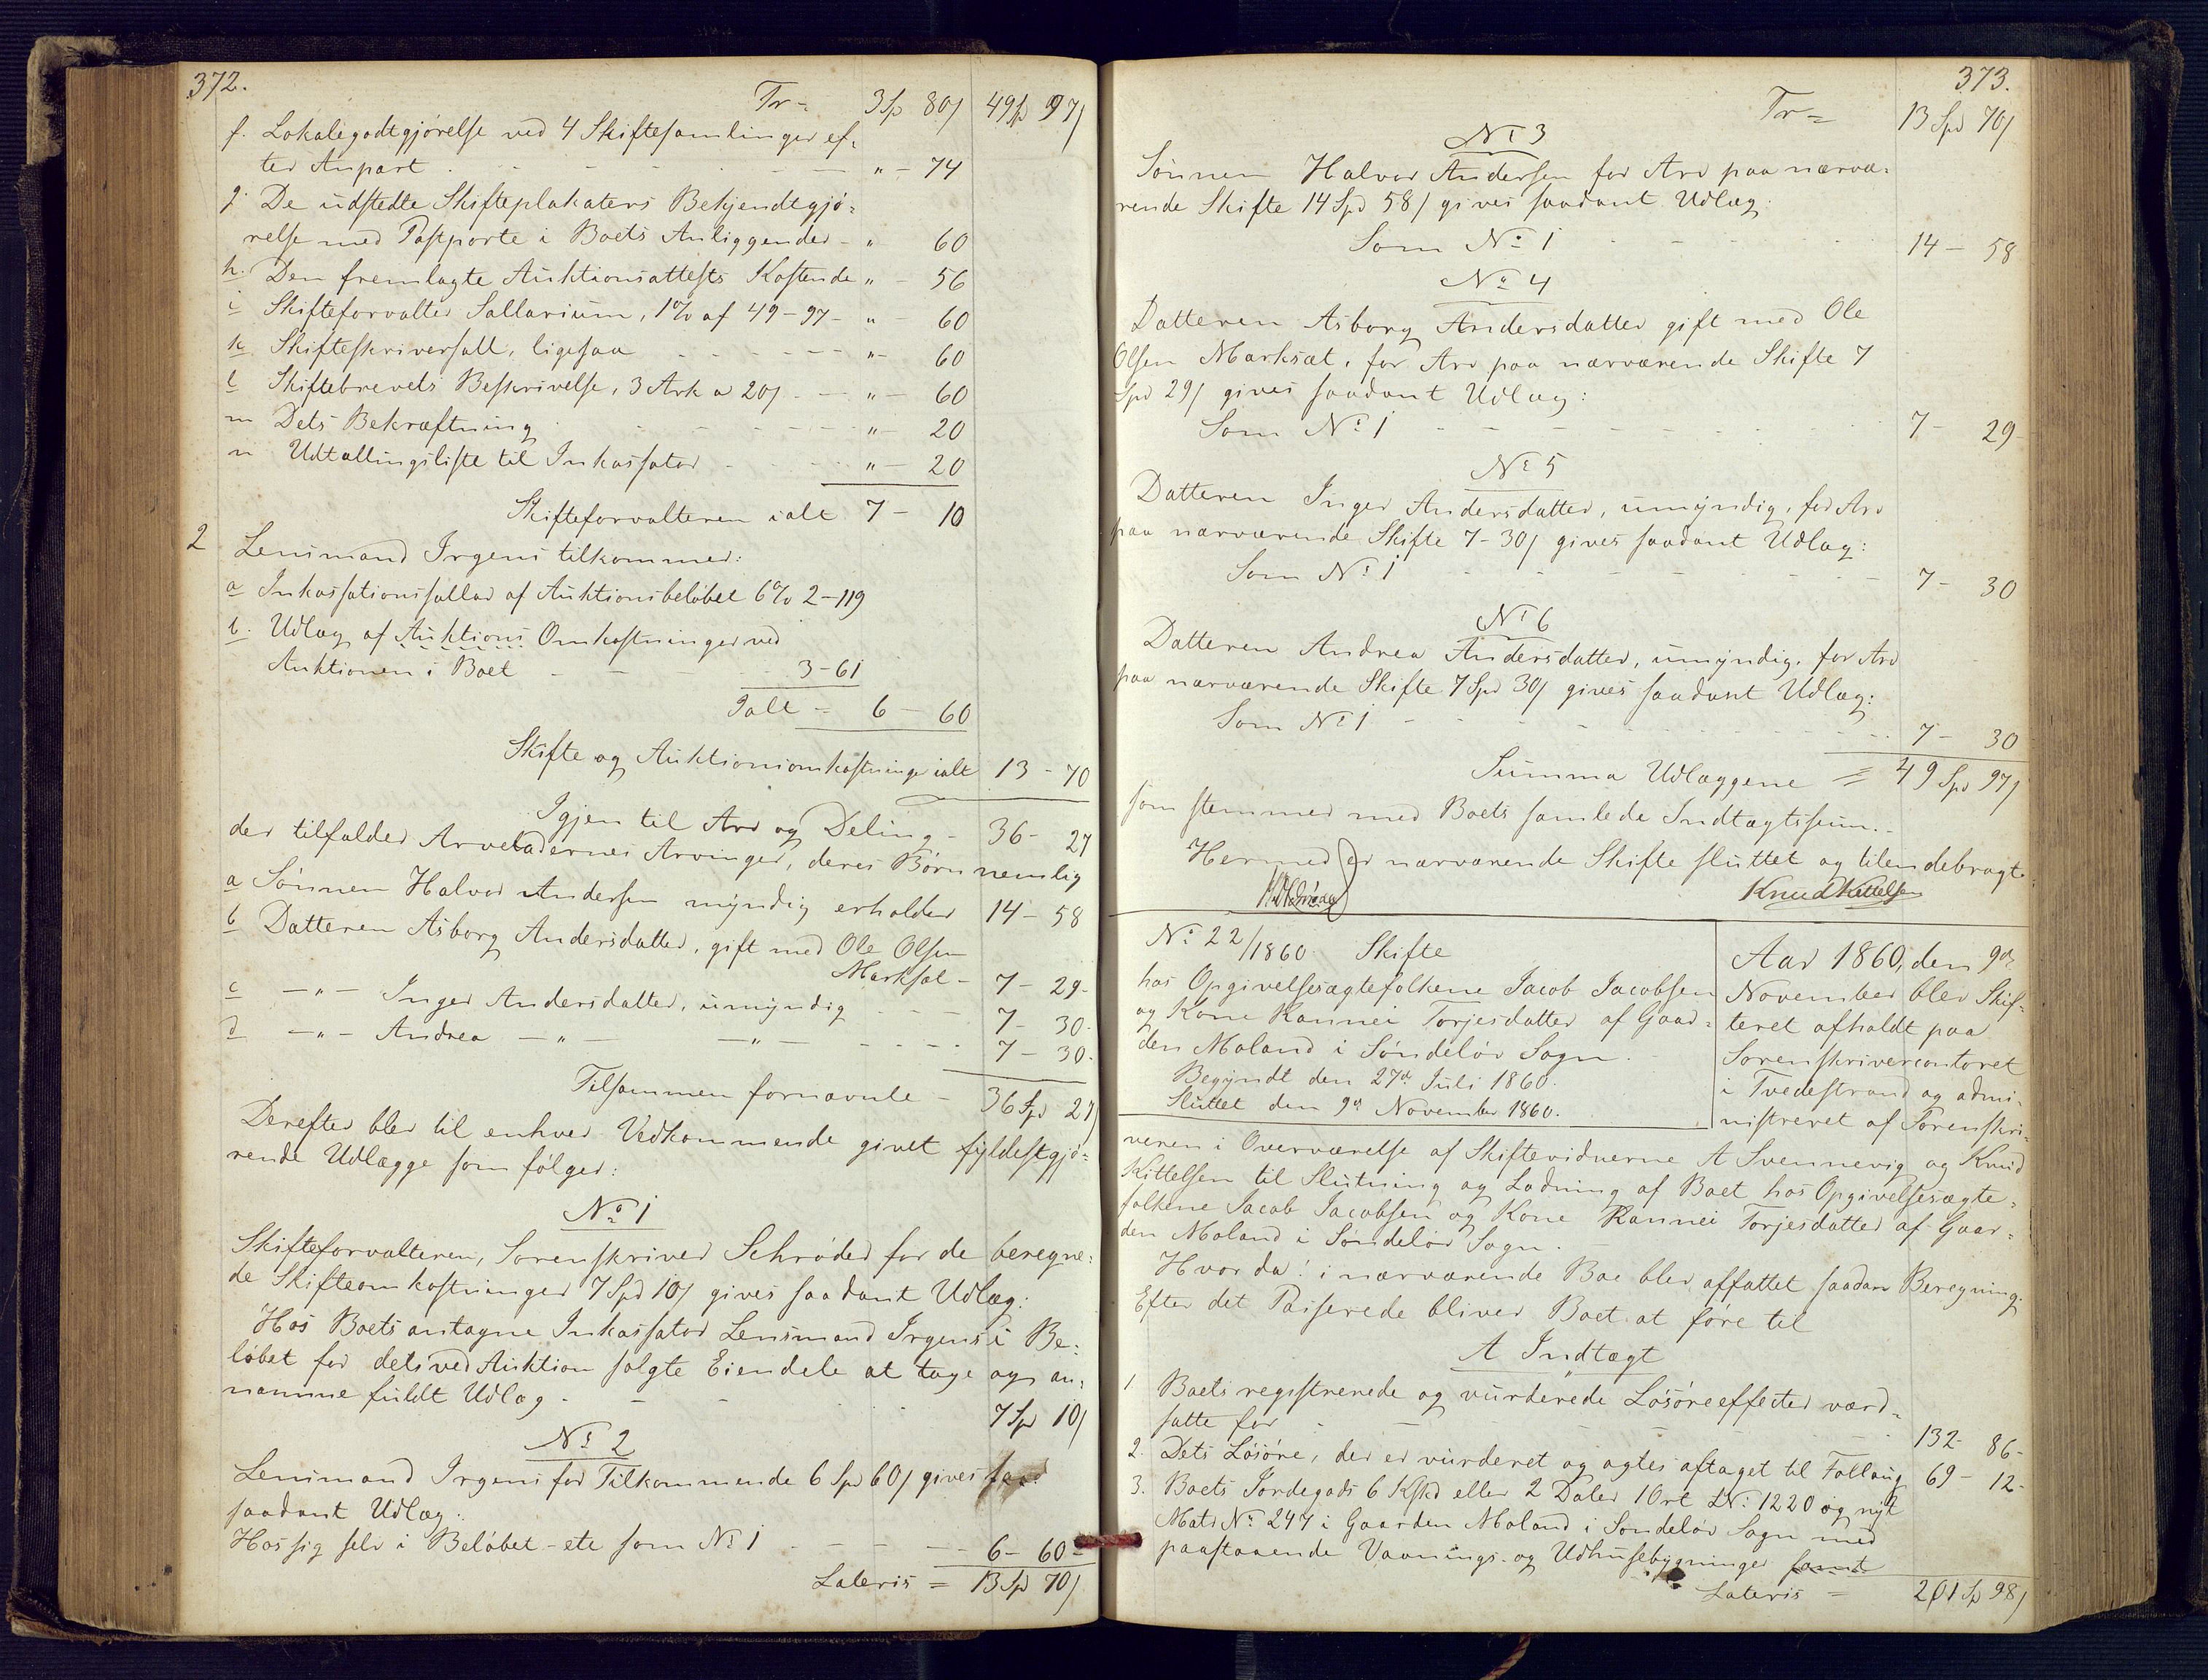 372.
Tr= 3 Sp 80ſ 49 Sp 97ſ
f. Lokalegodtgjörelse ved 4 Skiftesamlinger ef=
ter Anpart " - 74
g. De udstedte Skifteplakaters Bekjendtgjö=
relse med Postporto i Boets Anliggender - " 60
h. Den fremlagte Auktionsattests Kostende " - 56
i Skifteforvalter Sallarium, 1% af 49-97 - " - 60
k Skifteskriversall. ligesaa " - 60
l Skiftebrevets Beskrivelse, 3 Ark a 20ſ - " - 60
m Dets Bekræftning " - 20
n Udtallingsliste til Inkassator " - 20
Skifteforvalteren ialt 7 - 10
2 Lensmand Irgens tilkommer:
a Inkassationssallar af Auktionsbelöbet 6% 2-119
b. Udlæg af Auktions Omkostninger ved
Auktionen i Boet 3-61
Ialt = 6 - 60
Skifte og Auktionsomkostninger ialt 13 - 70
Igjen til Arv og Deling - 36 - 27
der tilfalder Arveladernes Arvinger, deres Börn nemlig
a Sönnen Halvor Andersen myndig erholder 14 - 58
b Datteren Asborg Andersdatter, gift med Ole Olsen
Marksæt - 7 - 29 -
c - " - Inger Andersdatter, umyndig 7 - 30 -
d - " - Andrea - " - - " - 7 - 30 -
Tilsammen fornævnte - 36 Spd 27ſ
Derefter blev til enhver Vedkommende givet fyldestgjö=
rende Udlægge som fölger:
No 1
Skifteforvalteren, Sorenskriver Schröder for de beregne=
de Skifteomkostninger 7 Spd 10ſ gives saadant Udlæg:
Hos Boets antagne Inkassator Lensmand Irgens i Be=
löbet for dets ved Auktion solgte Eiendele at tage og an=
namme fuldt Udlæg - 7 Spd 10ſ
No 2
Lensmand Irgens for Tilkommende 6 Spd 60ſ gives saa=
saadant Udlæg:
Hos sig selv i Belöbet - etc som No 1 6 - 60 -
Lateris = 13 Spd 70ſ
373.
Tr= 13 Spd 70ſ
No 3
Sönnen Halvor Andersen for Arv paa nærvæ=
rende Skifte 14 Spd 58ſ gives saadant Udlæg:
Som No 1 14 - 58
No 4
Datteren Asborg Andersdatter gift med Ole
Olsen Marksæt, for Arv paa nærværende Skifte 7
Spd 29ſ gives saadant Udlæg:
Som No 1 7 - 29 -
No 5
Datteren Inger Andersdatter, umyndig, for Arv
paa nærværende Skifte 7-30ſ gives saadant Udlæg:
Som No 1 7 - 30
No 6
Datteren Andrea Andersdatter, umyndig, for Arv
paa nærværende Skifte 7 Spd 30ſ gives saadant Udlæg:
Som No 1 7 - 30
Summa Udlæggene = 49 Spd 97ſ
som stemmer med Boets samlede Indtægtssum.-
Hermed er nærværende Skifte sluttet og tilendebragt.
Knud Kittelsen
No 22/1860 Skifte
hos Opgivelsesægtefolkene Jacob Jacobsen
og Kone Rannei Torjesdatter af Gaar=
den Moland i Söndeløv Sogn.
Begyndt den 27de Juli 1860.
Sluttet den 9de November 1860.
Aar 1860, den 9de
November blev Skif=
teret afholdt paa
Sorenskrivercontoret
i Tvedestrand og admi=
nistreret af Sorenskri=
veren i Overværelse af Skiftevidnerne A Svennevig og Knud
Kittelsen til Slutning og Lodning af Boet hos Opgivelsesægte=
folkene Jacob Jacobsen og Kone Rannei Torjesdatter af Gaar=
den Moland i Söndelöv Sogn.
Hvor da: i nærværende Boe blev affattet saadan Beregning:
Efter det Passerede bliver Boet at före til
A Indtægt
1. Boets registrerede og vurderede Lösöreeffecter værd=
satte for 132 - 86 -
2. Dets Lösöre, der er vurderet og agtes aftaget til Follaug 69 - 12 -
3. Boets Jordegods 6 Kskd eller 2 Daler 1 Ort LNo: 1220 og nyt
Matr No 247 i Gaarden Moland i Söndelöv Sogn med
paastaaende Vaanings- og Udhusebygninger samt
Lateris = 201 Sp 98ſ